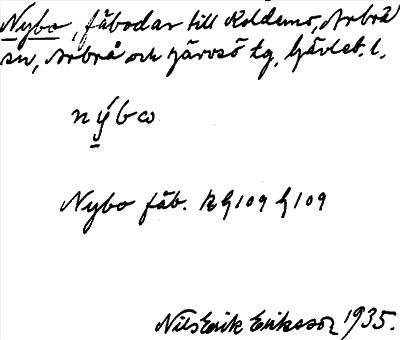 Nybo, fäbodar till Koldemo, Arbrå
sn, Arbrå och Järvsö tg, Gävleb. l.
nybω
Nybo fäb. RG109 G109
Nils Erik Eriksson 1935.